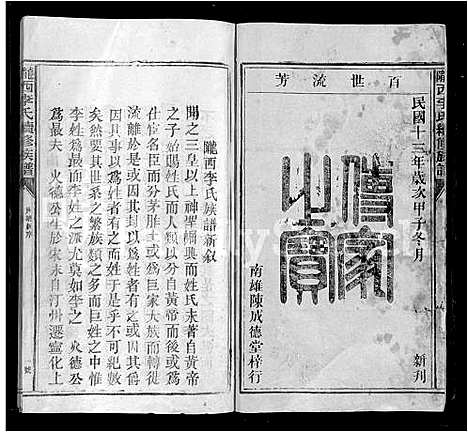 隴西李氏續修族譜
百世流芳
民國十三年歲次甲子冬月
新刊
傳家之寶
南雄陳成德堂梓行
隴西李氏族譜新叙
聞之三皇以上神聖繼興而姓氏未著自黃帝
而後始賜姓氏而人類以分自黃帝而後或爲
仕宦名臣而分茅胙土或爲巨家大族而
流離於是或有以官爲姓者有或因其
因事以爲姓者而姓于是乎不可紀數
矣然要其世系之蕃族類之多而巨姓之中惟
李姓爲最而李姓之派尤莫如李之 火德公
爲最夫 火德公生於宋末自汀州遷寧化上
隴西李氏續修族譜
一號